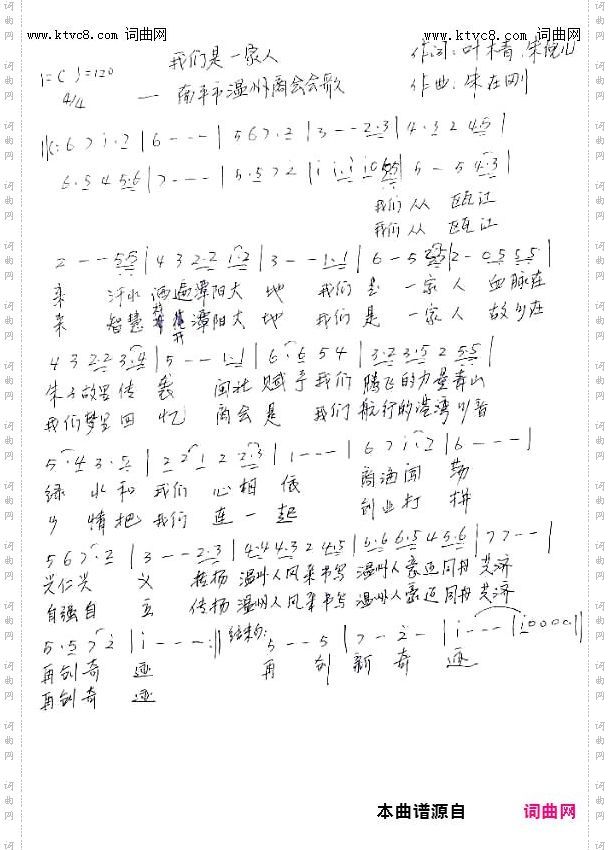 www.ktvc8.com 词曲网 www.ktvc8.com 词曲网
我们是一家人 作词:叶木青.朱
1=C ♩=120
4/4 — 南平市温州商会会歌 作曲.朱在刚
‖: 6 7 i·2 | 6 - - - | 5 6 7·2 | 3 - - 2·3 | 4·3 2 4 5 |
6·5 4 5·6 | 7 - - - | 5·5 7 2 | i i·i i 0 5 5 | 5 - 5 4·3 |
我们从 瓯江
我们从 瓯江
2 - - 5·5 | 4 3 2·2 1·2 | 3 - - 1·1 | 6 - 5 2·5 | 2 - 0 5 5 5 |
来 汗水 洒遍潭阳大 地 我们 是 一家 人 血脉在
来 智慧 潭阳大 地 我们 是 一家 人 故乡在
4 3 2·2 3·4 | 5 - - 1·1 | 6·6 5 4 | 3·2 3·5 2 5 5 |
朱子故里传 袭 闽北 赋予 我们 腾飞的力量青山
我们梦里回 忆 商会是 我们 航行的港湾乡音
5·4 3·5 | 2 2 1 2 2·3 | 1 - - - | 6 7 i·2 | 6 - - - |
绿 水和 我们 心相 依 商海闯 荡
乡 情把 我们 连一 起 创业打 拼
5 6 7·2 | 3 - - 2·3 | 4·4 4·3 2 4·5 | 6·6 6·5 4 5·6 | 7 7 - - |
兴仁兴 义 拨扬 温州人风采书写 温州人豪迈同舟 共济
自强自 立 传扬 温州人风采书写 温州人豪迈同舟 共济
5·5 7 2 | i - - - :‖ 结束句: 5 - - 5 | 7 - 2 - | i - - - | i 0 0 0 0 ‖
再创奇 迹 再 创 新 奇 迹
再创奇 迹
本曲谱源自 词曲网